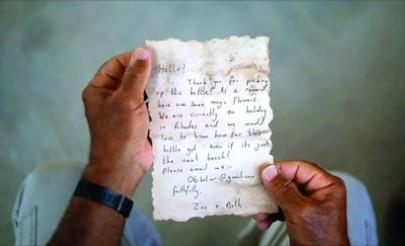 Hello!
Thank you for picking
up this bottle! As a reward
here are some magic flowers.
We are currently on holiday
in Rhodes and we would
love to know how far this
bottle got - even if its just
the next beach!
Please email me :-
@gmail.com
faithfully,
Zoe + Beth